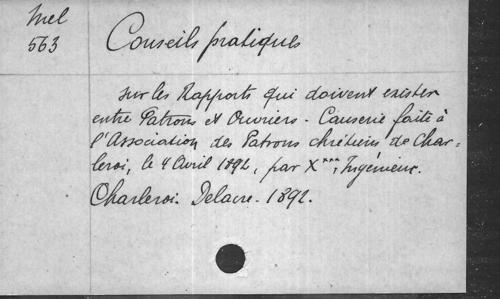 Mel
563
Conseils pratiques
sur les Rapports qui doivent exister
entre Patrons et Ouvriers - Causerie faite à
l'Association des Patrons chrétiens de Char-
leroi, le 4 Avril 1892, par X***, Ingénieur.
Charleroi. Delacre. 1892.